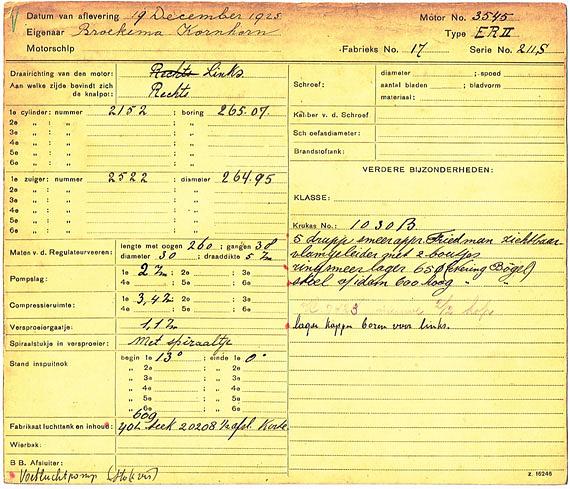 Datum van aflevering 19 December 1925 Motor No. 3545
Eigenaar Broekema Kornhorn Type ERII
Motorschip Fabrieks No. 17 Serie No. 211,S
Draairichting van den motor: Rechts Links
Aan welke zijde bevindt zich de knalpot: Rechts
1e cylinder: nummer 2152 ; boring 265.07
2e " : " ; "
3e " : " ; "
4e " : " ; "
5e " : " ; "
6e " : " ; "
1e zuiger: nummer 2522 ; diameter 264.95
2e " : " ; "
3e " : " ; "
4e " : " ; "
5e " : " ; "
6e " : " ; "
Maten v. d. Regulateurveeren: lengte met oogen 260 ; gangen 38
diameter 30 ; draaddikte 5
Pompslag: 1e 2 ; 2e ; 3e
4e ; 5e ; 6e
Compressieruimte: 1e 3,4 ; 2e ; 3e
4e ; 5e ; 6e
Versproeiergaatje: 1,1
Spiraalstukje in versproeier: Met spiraaltje
Stand inspuitnok begin 1e 13° ; einde 1e 0°
" 2e ; " 2e
" 3e ; " 3e
" 4e ; " 4e
" 5e ; " 5e
" 6e ; " 6e
Fabrikaat luchttank en inhoud: 60g 40L 20208
Wierbak:
B B. Afsluiter:
Voorluchtpomp
Schroef: diameter ; spoed
aantal bladen ; bladvorm
materiaal:
Kaliber v. d. Schroef
Schroefasdiameter:
Brandstoftank:
VERDERE BIJZONDERHEDEN:
KLASSE:
Krukas No.: 1030 B
5 drupp smeerappr. Friedman zichtbaar
vlamgeleider met 2 boutjes
ringsmeer lager 65 Ø (kering Bögel)
stoel v/idem 600 hoog " "
lager kappen boren voor links.
z. 16246